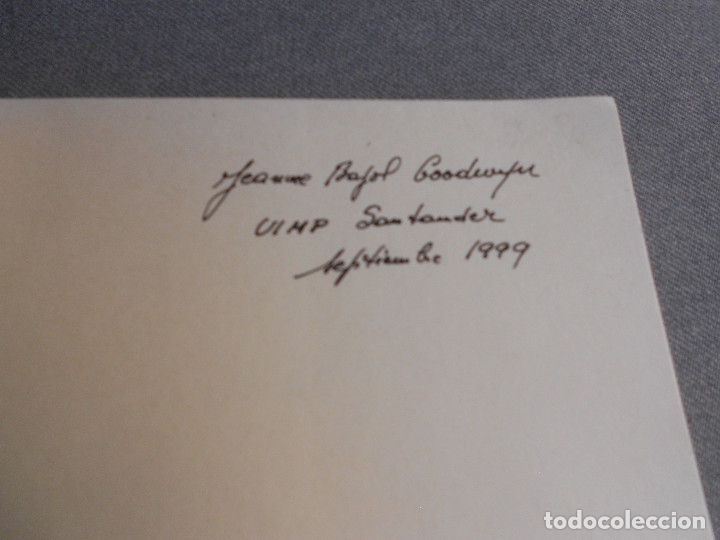 Jeanne Bajol Goodwyn
UIMP Santander
septiembre 1999
todocoleccion